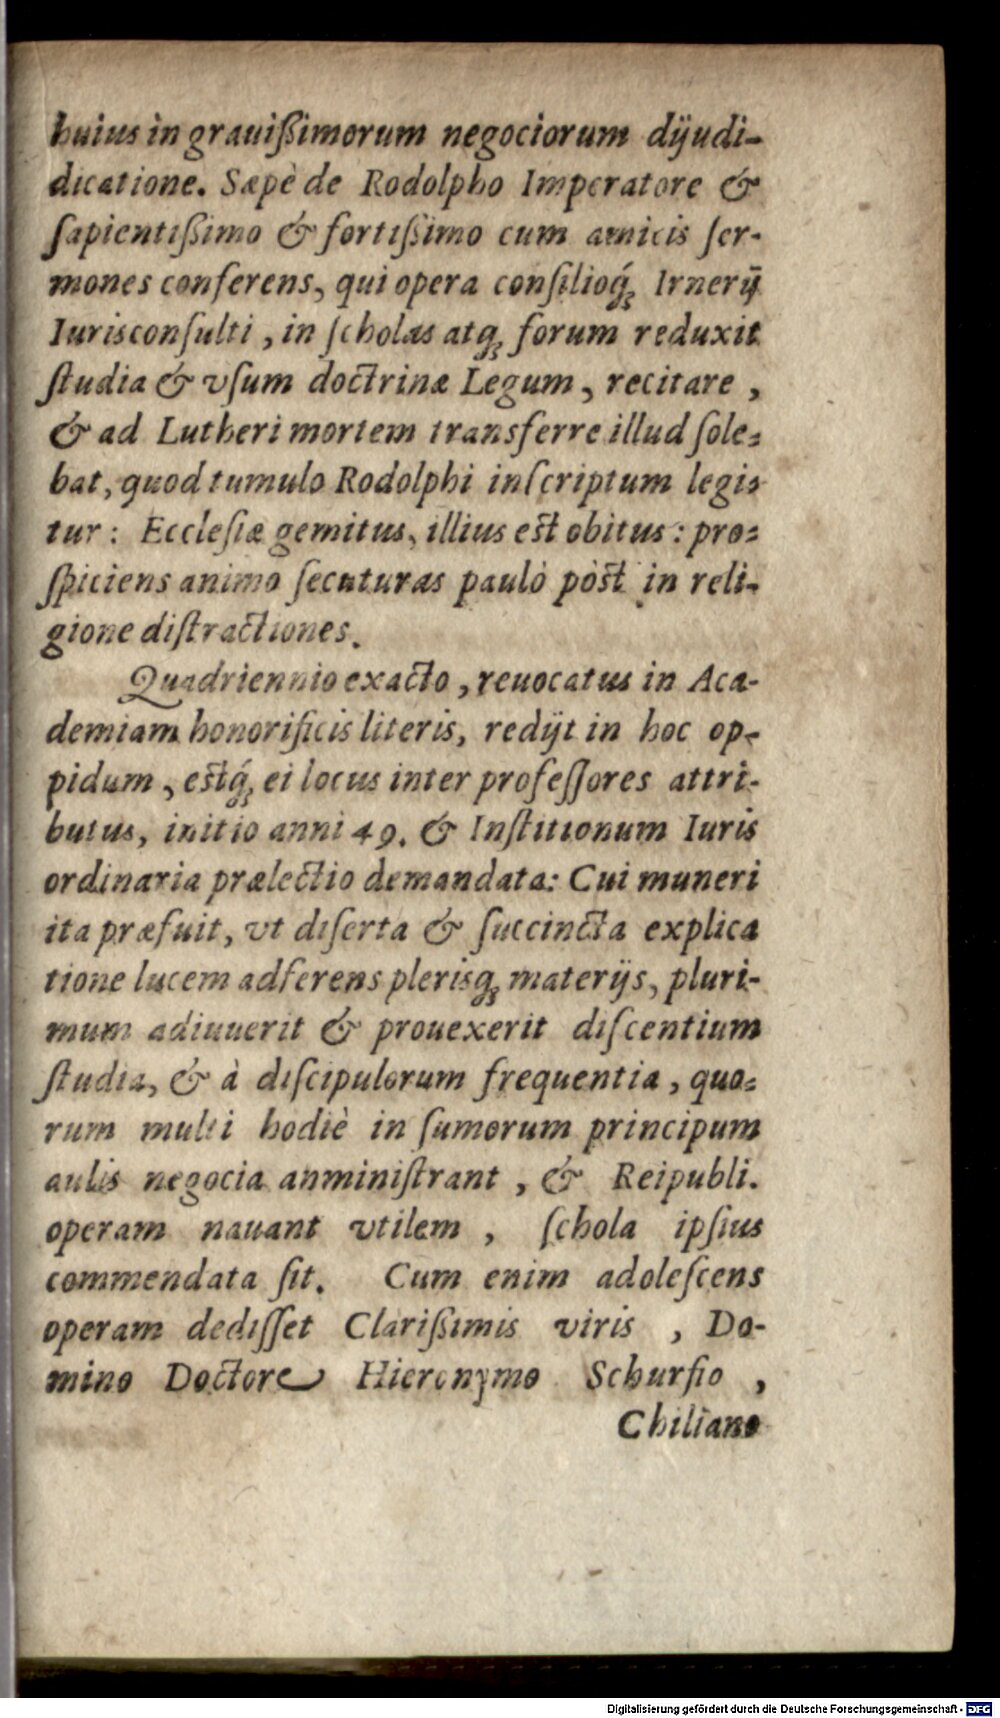 huius in grauißimorum negociorum dijudi-
dicatione. Sæpè de Rodolpho Imperatore &
ſapientißimo & fortißimo cum amicis ſer-
mones conferens, qui opera conſilioq́ꝫ Irnerij
Iurisconſulti, in ſcholas atqꝫ forum reduxit
ſtudia & vſum doctrinæ Legum, recitare,
& ad Lutheri mortem transferre illud ſole-
bat, quod tumulo Rodolphi inſcriptum legi-
tur: Eccleſiæ gemitus, illius est obitus: pro-
ſpiciens animo ſecuturas paulò pòst in reli-
gione diſtractiones.
Quadriennio exacto, reuocatus in Aca-
demiam honorificis literis, redijt in hoc op-
pidum, estq́ꝫ ei locus inter profeſſores attri-
butus, initio anni 49. & Inſtitionum Iuris
ordinaria prælectio demandata: Cui muneri
ita præfuit, vt diſerta & ſuccincta explica
tione lucem adferens plerisqꝫ materijs, pluri-
mum adiuuerit & prouexerit diſcentium
ſtudia, & à diſcipulorum frequentia, quo-
rum multi hodiè in ſumorum principum
aulis negocia anminiſtrant, & Reipubli.
operam nauant vtilem, ſchola ipſius
commendata ſit. Cum enim adoleſcens
operam dediſſet Clarißimis viris, Do-
mino Doctore Hieronymo Schurfio,
Chiliano
Digitalisierung gefördert durch die Deutsche Forschungsgemeinschaft - DFG